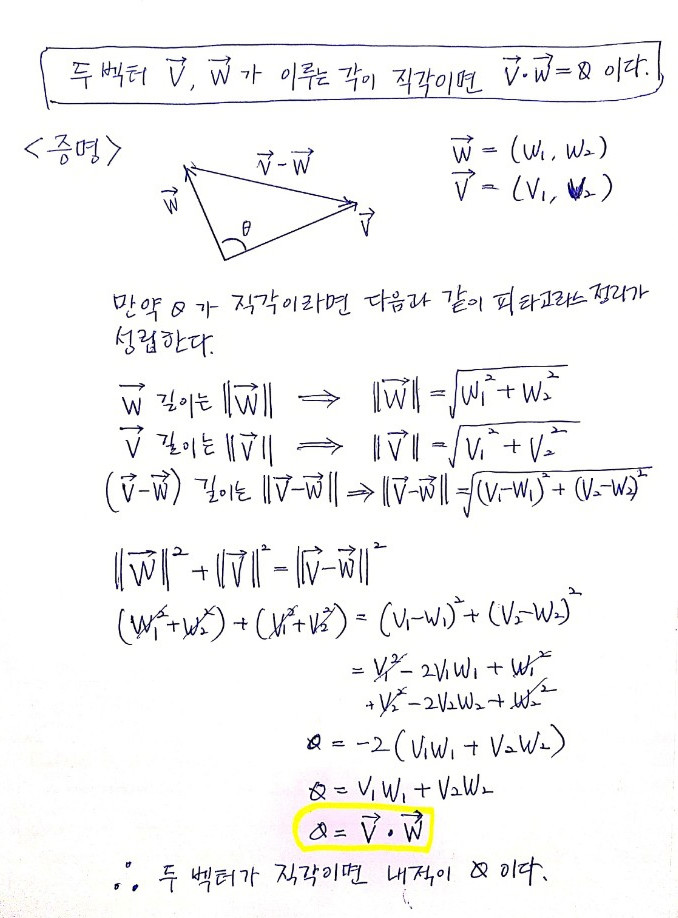 두 벡터 V⃗, W⃗ 가 이루는 각이 직각이면 V⃗·W⃗=0 이다.
<증명>
V⃗-W⃗
W⃗
θ
V⃗
W⃗ = (W₁, W₂)
V⃗ = (V₁, V₂)
만약 θ가 직각이라면 다음과 같이 피타고라스 정리가
성립한다.
W⃗ 길이는 ‖W⃗‖ ⟹ ‖W⃗‖ = √(W₁²+W₂²)
V⃗ 길이는 ‖V⃗‖ ⟹ ‖V⃗‖ = √(V₁²+V₂²)
(V⃗-W⃗) 길이는 ‖V⃗-W⃗‖ ⟹ ‖V⃗-W⃗‖ = √((V₁-W₁)²+(V₂-W₂)²)
‖W⃗‖²+‖V⃗‖² = ‖V⃗-W⃗‖²
(W₁²+W₂²)+(V₁²+V₂²) = (V₁-W₁)²+(V₂-W₂)²
= V₁²-2V₁W₁+W₁²
+V₂²-2V₂W₂+W₂²
0 = -2(V₁W₁+V₂W₂)
0 = V₁W₁+V₂W₂
0 = V⃗·W⃗
∴ 두 벡터가 직각이면 내적이 0 이다.